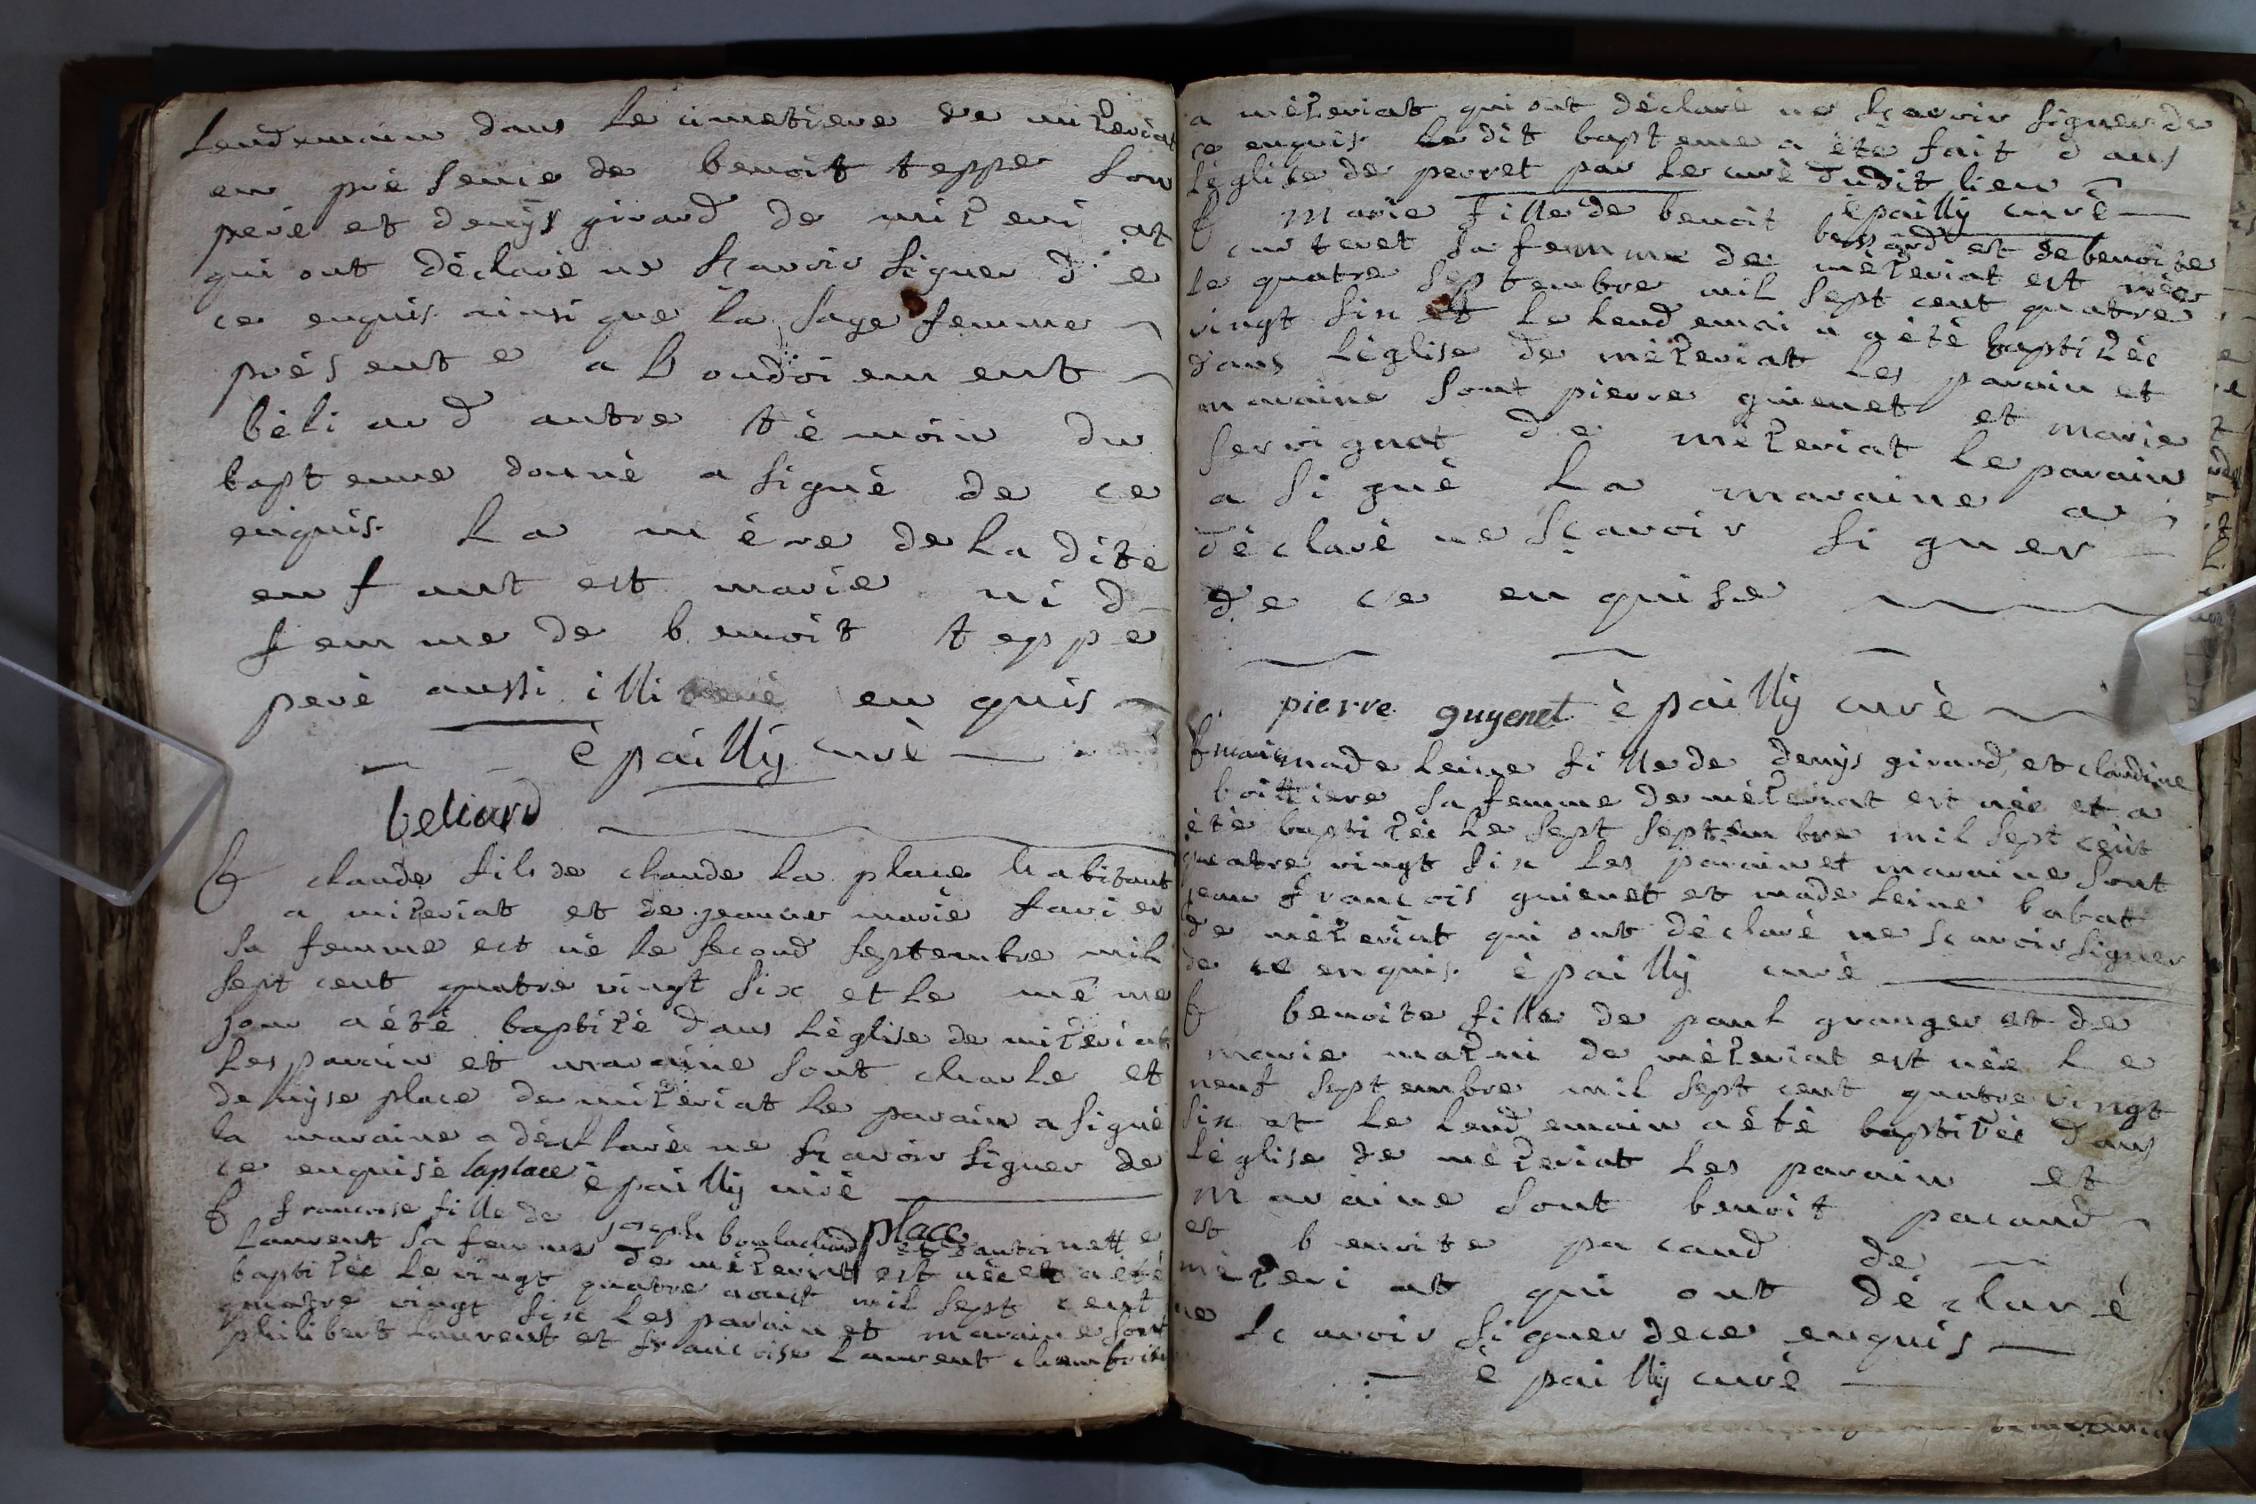 lendemain dans le cimetiere de mizeriat
en présencie de benoit teppe son
peré et denÿs girard de mizeri at
qui ont déclaré ne sçavoir signer de
ce enquis ainsi que la sage femme
présent e a londoiem ent
béli ard autre témoin du
baptemme donné a signé de ce
enquis La mère de La dite
enfant est marie ni d
femme de benoit teppe
peré aussi illi en quis
épaillÿ curé
beliard
claude fils de claude la place habitant
a mizeriat et de jeanne marie favier
sa femme est né le second septembre mil
sept cent quatre vingt six et le mê me
jour a été baptizé dans L'église de mizeriat
Les parain et maraine sont charle et
denÿse place de mizériat le parain a signé
la maraine a déclaré ne sçavoir signer de
ce enquisé laplace épaillÿ curé
place
francoise fille de joseph boulachard et d'antoinette
Laurent sa femme de mézeriat est née et a été
baptizée le vingt quatre aoust mil sept cent
quatre vingt six les parain et maraine sont
philibert laurent et françoise laurent
a mézeriat qui ont déclaré ne sçavoir signer de
ce enquis le dit bapteme a été fait dans
L'église de perret par le curé dudit lieu
épaillÿ curé
Marie fille de benoit bessard et de benoite
curteret sa femme de mézeriat est née
le quatre septembre mil sept cent quatre
vingt six et le lendemai n a été baptizée
dans L'église de mézeriat Les parain et
maraine sont pierre guienet et marie
servignat de mézeriat le parain
a si gné La maraine a
déclaré ne sçavoir si gner
de ce en quise
pierre guyenet épaillÿ curé
marie madeleine fille de denÿs girard et claudine
boittiere sa femme de mézeriat est née et a
été baptizée le sept septembre mil sept cent
quatre vingt six les parain et maraine sont
jean françois guienet et madeleine babat
de mézeriat qui ont déclaré ne sçavoir signer
de ce enquis épaillÿ curé
benoite fille de paul granger et de
marie mazui de mézeriat est née le
neuf septembre mil sept cent quatre vingt
six et le lendemain a été baptizée dans
L'église de mézeriat les parain et
maraine sont benoit pacaud
et benoite pacaud de
mézeri at qui ont déclaré
ne sçavoir signer de ce enquis
épaillÿ curé